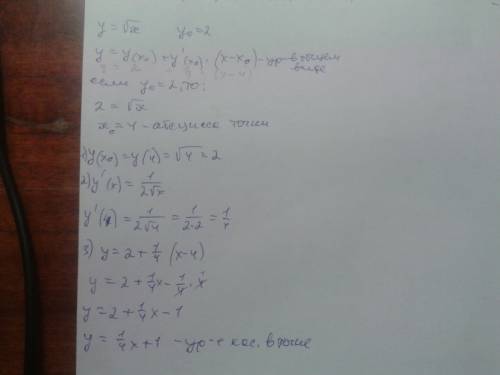 y = √x    y₀ = 2
y = y(x₀) + y'(x₀) · (x - x₀) - ур-е в общем
виде
если y₀ = 2, то:
2 = √x
x₀ = 4 - абсцисса точки
1) y(x₀) = y(4) = √4 = 2
2) y'(x) = 1/(2√x)
y'(4) = 1/(2√4) = 1/(2·2) = 1/4
3) y = 2 + 1/4 (x - 4)
y = 2 + 1/4 x - 1/4 · 4
y = 2 + 1/4 x - 1
y = 1/4 x + 1 - ур-е кас. в точке